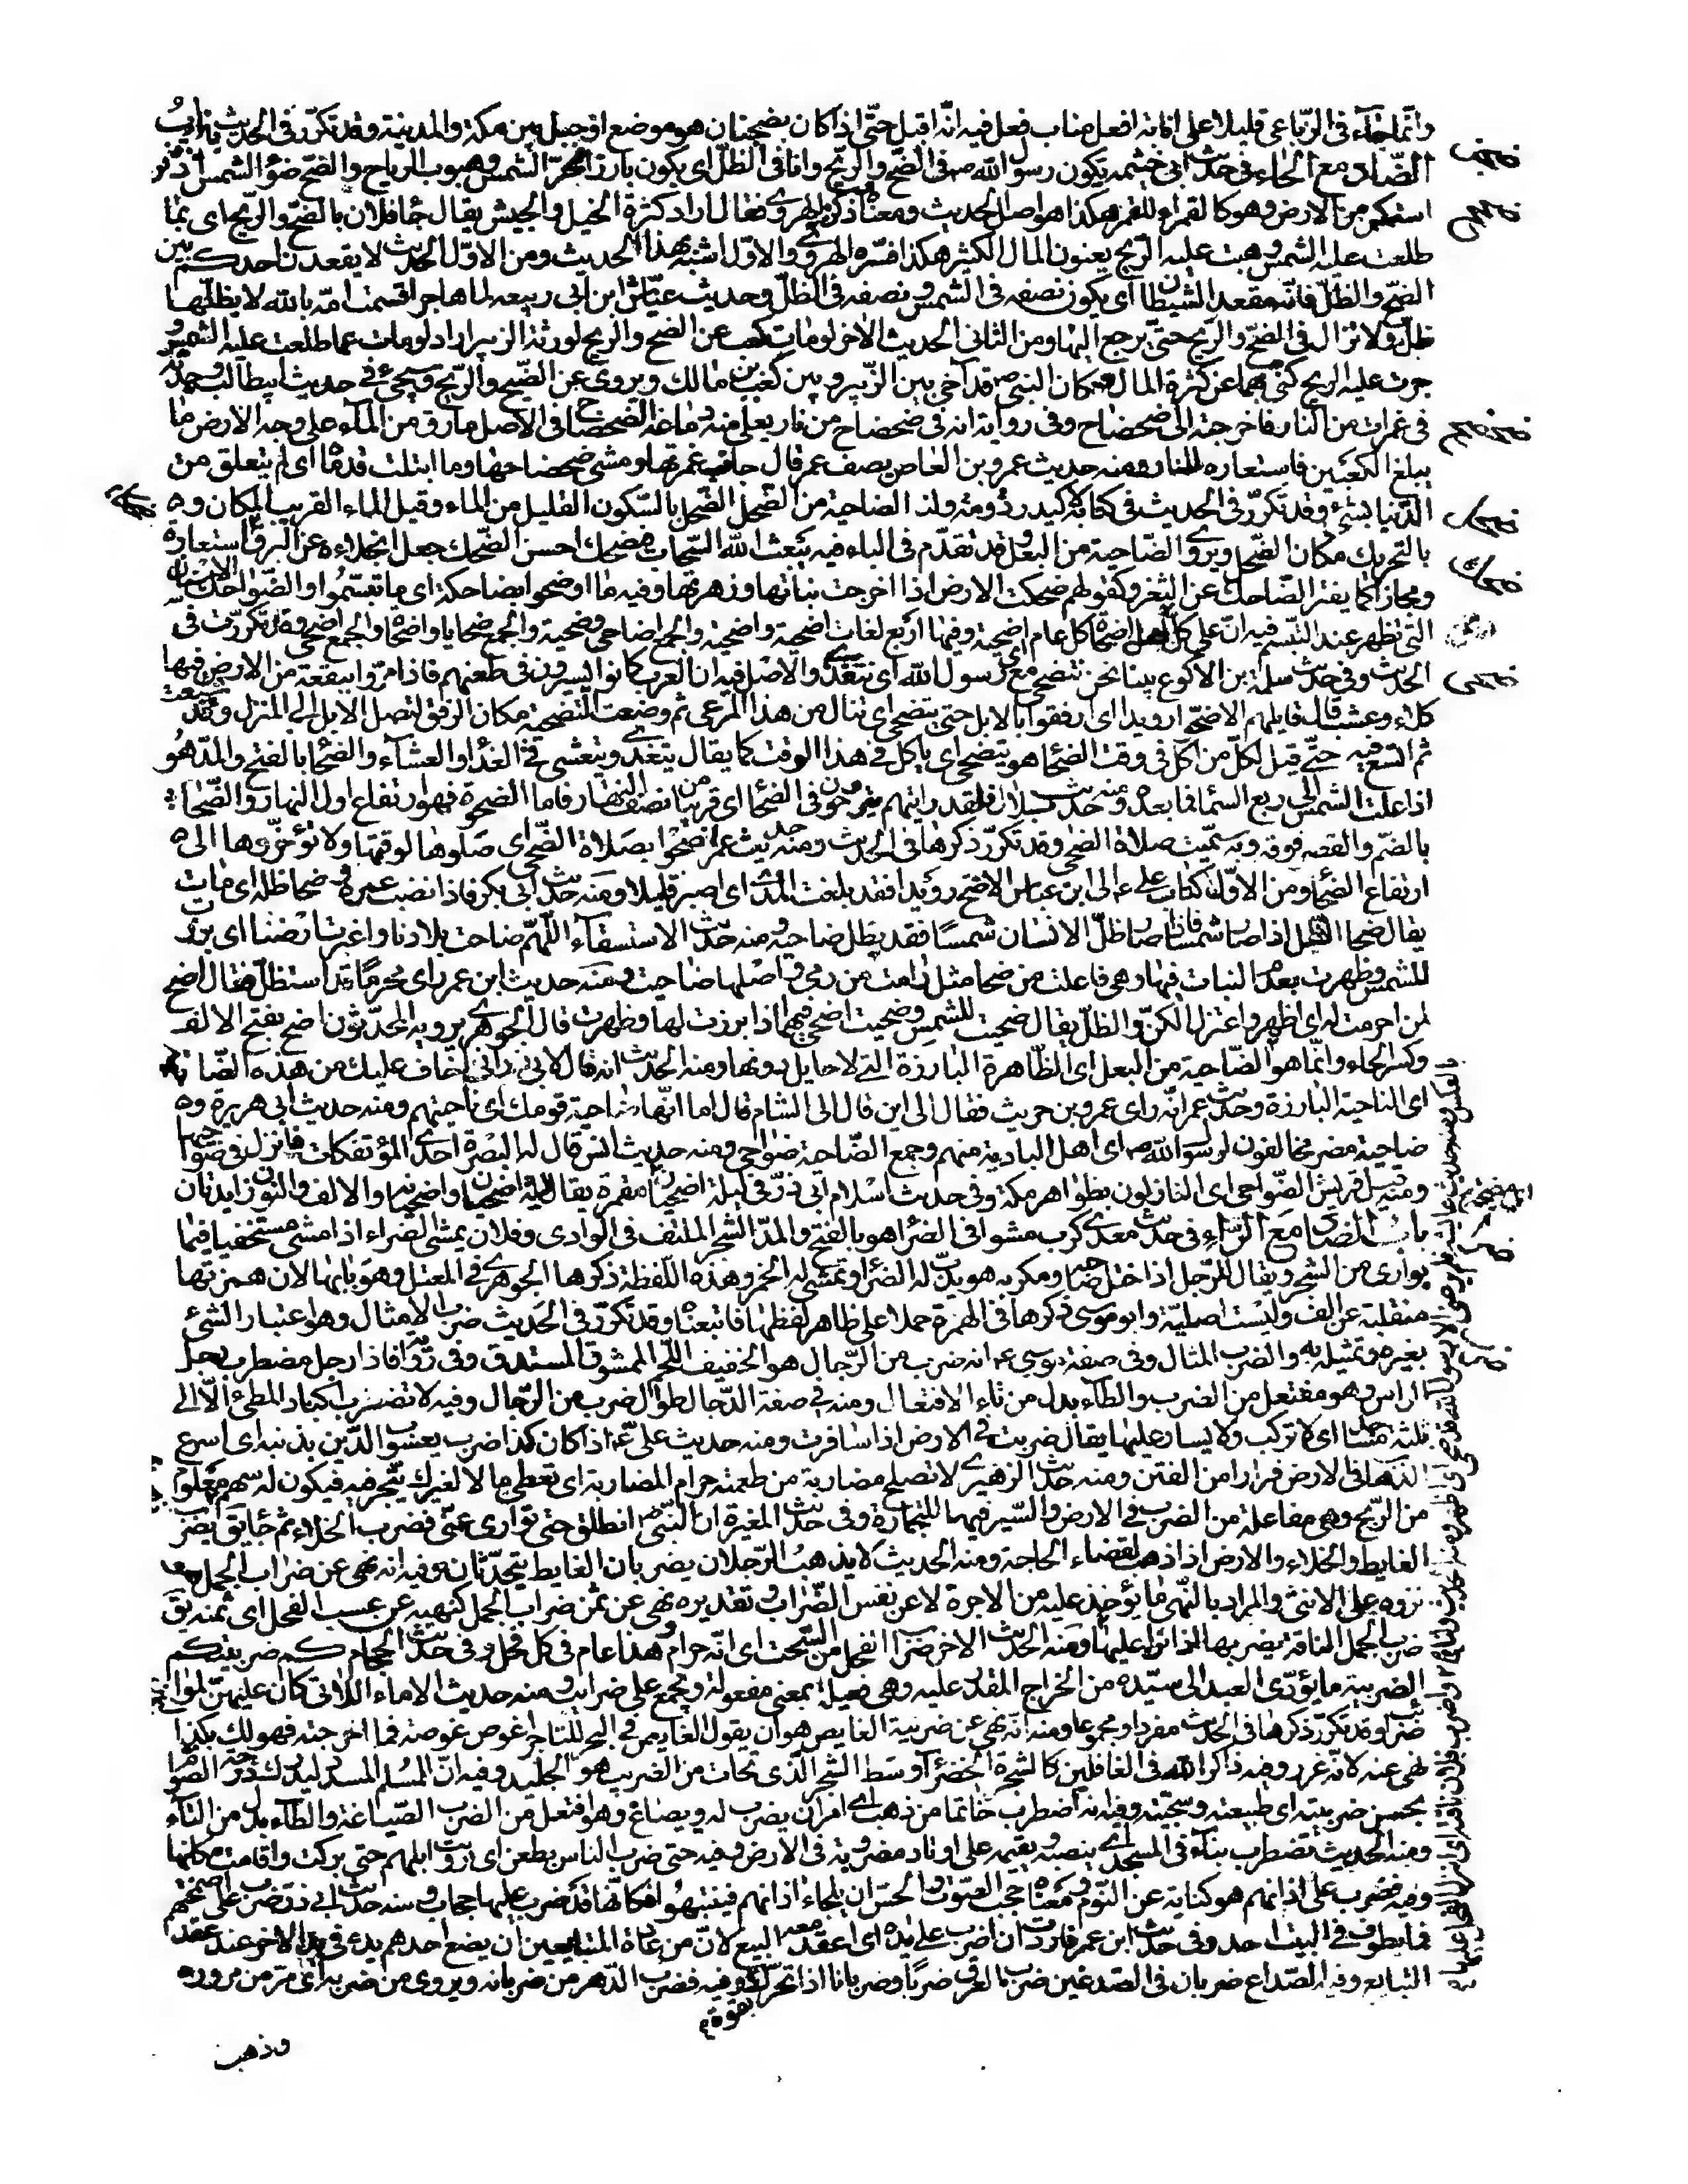 وانما جاء فى الرباعى قليلا على اناته افعل مناب فعل فيه انه اقبل حتى اذا كان بضجنان هو موضع او جبل بين مكة والمدينة وقد تكرر فى الحديث باب
الضاد مع الحاء فى حديث ابى خيثمه يكون رسول الله ص فى الضح والريح وانا فى الظل اى يكون بارزا لحر الشمس وهبوب الرياح والضح ضوء الشمس اذا
استمكن من الارض وهو كالقمراء للقمر هكذا هو اصل الحديث ومعناه ذكر الهروى فقال اراد كثرة الخيل والجيش يقال جا فلان بالضح والريح اى بما
طلعت عليه الشمس وهبت عليه الريح يعنون المال الكثير هكذا فسره الهروى والاول اشبه بهذا الحديث ومن الاول الحديث لا يقعدن احدكم بين
الضح والظل فانه مقعد الشيطان اى يكون نصفه فى الشمس ونصفه فى الظل وحديث عياش ابن ابى ربيعه لما هاجر اقسمت امه بالله لا يظلها
ظل ولا تزال فى الضح والريح حتى يرجع اليها ومن الثانى الحديث الاخر لومات كعب عن الضح والريح لورثه الزبير اراد لومات عما طلعت عليه الشمس و
جرت عليه الريح كنى بهما عن كثرة المال وكان النبى ص قد آخى بين الزبير وبين كعب بن مالك ويروى عن الضيح والريح وسيجىء فى حديث ابيطالب وجدته
فى غمرات من النار فاخرجته الى ضحضاح وفى رواية انه فى ضحضاح من نار يغلى منه دماغه الضحضاح فى الاصل مارق من الماء على وجه الارض ما
يبلغ الكعبين فاستعاره للنار ومنه حديث عمرو بن العاص يصف عمر قال جانب غمرتها ومشى ضحضاحها وما ابتلت قدماه اى لم يتعلق من
الدنيا بشىء وقد تكرر فى الحديث فى كتابه لاكيدر دومة ولنا الضاحية من الضحل الضحل بالسكون القليل من الماء وقيل الماء القريب المكان وه
بالتحريك مكان الضحل ويروى الضاحية من البعل وقد تقدم فى الباء فيه يبعث الله السحاب فيضحك احسن الضحك جعل انجلاءه عن البرق استعارة
ومجازا كما يفتر الضاحك عن الثغر وكقولهم ضحكت الارض اذا اخرجت نباتها وزهرتها وفيه ما اوضحوا بضاحكة اى ما تبسموا والضواحك الاسنان
التى تظهر عند التبسم فيه ان على كل اهل اضحاة كل عام اضحية وفيها اربع لغات اضحية واضحية والجمع اضاحى وضحية والجمع ضحايا واضحاة والجمع اضحى وقد تكررت فى
الحديث وفى حديث سلمة بن الاكوع بينا نحن نتضحى مع رسول الله اى نتغدى والاصل فيه ان العرب كانوا يسيرون فى ظعنهم فاذا مروا ببقعة من الارض فيها
كلاء وعشب قال قايلهم الا ضحوا رويدا اى ارفقوا بالابل حتى يتضحى اى تنال من هذا المرعى ثم وضعت التضحية مكان الرفق لتصل الابل الى المنزل وقد شبعت
ثم اتسع فيه حتى قيل لكل من اكل فى وقت الضحا هو يتضحى اى ياكل فى هذا الوقت كما يقال يتغدى ويتعشى فى الغدا والعشاء والضحا بالفتح والمد هو
اذا علت الشمس الى ربع السما فما بعده ومنه حديث بلال فلقد رايتهم يتروحون فى الضحا اى قريبا من نصف النهار فاما الضحوة فهو ارتفاع اول النهار والضحا
بالضم والقصر فوقه وبه سميت صلاة الضحى وقد تكرر ذكرها فى الحديث ومنه حديث عمر اضحوا بصلاة الضحى اى صلوها لوقتها ولا تؤخروها الى
ارتفاع الضحا ومن الاول كتاب على ع الى ابن عباس الا ضح رويدا فقد بلغت المدى اى اصبر قليلا ومنه حديث ابى بكر فاذا نضب عمره وضحا ظله اى مات
يقال ضحا الظل اذا صار شمسا فاذا صار ظل الانسان شمسا فقد بطل صاحبه ومنه حديث الاستسقاء اللهم ضاحت بلادنا واغبرت ارضنا اى برزت
للشمس وظهرت بعدم النبات فيها وهى فاعلت من ضحا مثل رامت من رمى واصلها ضاحيت ومنه حديث ابن عمر راى محرما قد استظل فقال اضح
لمن احرمت له اى اظهر واعتزل الكن والظل يقال ضحيت للشمس وضحيت اضحى فيهما اذا برزت لها وظهرت قال الجوهرى يرويه المحدثون اضح بفتح الالف
وكسر الحاء وانما هو الضاحية من البعل اى الظاهرة البارزة التى لا حايل دونها ومنه الحديث انه قال لابى ذر انى اخاف عليك من هذه الضاحية
اى الناحية البارزة وحديث عمر انه راى عمرو بن حريث فقال الى اين قال الى الشام قال اما انها ضاحية قومك اى ناحيتهم ومنه حديث ابى هريرة وه
ضاحية مضر مخالفون لرسول الله ص اى اهل البادية منهم وجمع الضاحية ضواحى ومنه حديث انس قال له البصرة احدى المؤتفكات فانزل فى ضواحيها
ومنه قيل قريش الضواحى اى النازلون بظواهر مكة وفى حديث اسلام ابى ذر فى ليلة اضحيان اى مقمرة يقال ليلة اضحيان واضحيانه والالف والنون زايدتان
باب الضاد مع الراء فى حديث معدى كرب مشوا فى الضراء هو بالفتح والمد الشجر الملتف فى الوادى وفلان يمشى الضراء اذا مشى مستخفيا فيما
يوارى من الشجر ويقال للرجل اذا ختل صاحبه ومكر به هو يدب له الضراء ويمشى له الخمر وهذه اللفظة ذكرها الجوهرى فى المعتل وهو بابها لان همزتها
منقلبة عن الف وليست اصلية وابو موسى ذكرها فى الهمزة حملا على ظاهر لفظها فاتبعناه وقد تكرر فى الحديث ضرب الامثال وهو اعتبار الشئ
بغيره وتمثيله به والضرب المثال وفى صفة موسى ع انه ضرب من الرجال هو الخفيف اللحم الممشوق المستدق وفى رواية فاذا رجل مضطرب رجل
الراس وهو مفتعل من الضرب والطاء بدل من تاء الافتعال ومنه فى صفة الدجال طوال ضرب من الرجال وفيه لا تضرب اكباد المطى الا الى
ثلثة مساجد اى لا تركب ولا يسار عليها يقال ضربت فى الارض اذا سافرت ومنه حديث على ع اذا كان كذا ضرب يعسوب الدين بذنبه اى اسرع
الذهاب فى الارض فرارا من الفتن ومنه حديث الزهرى لا تصلح مضاربة من طعمته حرام المضاربة ان تعطى مالا لغيرك يتجر فيه فيكون له سهم معلوم
من الربح وهى مفاعلة من الضرب فى الارض والسير فيها للتجارة وفى حديث المغيرة ان النبى ص انطلق حتى توارى عنى فضرب الخلاء ثم جا يق يضرب
الغايط والخلاء والارض اذا ذهب لقضاء الحاجة ومنه الحديث لا يذهب الرجلان يضربان الغايط يتحدثان وفيه انه نهى عن ضراب الجمل هو
نزوه على الانثى والمراد بالنهى ما يؤخذ عليه من الاجرة لا عن نفس الضراب وتقديره نهى عن ثمن ضراب الجمل كنهيه عن عسب الفحل اى ثمنه يق
ضرب الجمل الناقة يضربها اذا نزا عليها ومنه الحديث الاخر ضراب الفحل من السحت اى انه حرام وهذا عام فى كل فحل وفى حديث الحجام كم ضريبتكم
الضريبة ما يؤدى العبد الى سيده من الخراج المقدر عليه وهى فعيلة بمعنى مفعولة وتجمع على ضرايب ومنه حديث الاماء اللاتى كان عليهن لمواليهن
ضرايب وقد تكرر ذكرها فى الحديث مفردا ومجموعا ومنه انه نهى عن ضربة الغايص هو ان يقول الغايص فى البحر للتاجر اغوص غوصة فما اخرجته فهو لك بكذا
نهى عنه لانه غرر وفيه ذاكر الله فى الغافلين كالشجرة الخضراء وسط الشجر الذى تحات من الضريب هو الجليد وفيه ان المسلم المسدد ليدرك درجة الصوام
بحسن ضريبته اى طبيعته وسجيته وفيه انه اضطرب خاتما من ذهب اى امر ان يضرب له ويصاغ وهو افتعل من الضرب الصياغة والطاء بدل من التاء
ومنه الحديث تضطرب بناء فى المسجد اى ينصبه ويقيمه على اوتاد مضروبة فى الارض وفيه حتى ضرب الناس بعطن اى رويت ابلهم حتى بركت واقامت مكانها
وفيه فضرب على اذانهم هو كناية عن النوم ومعناه حجب الصوت والحس ان يلجا اذانهم فينتبهوا فكانها قد ضرب عليها حجاب ومنه حديث ابى ذر ضرب على اصمختهم
فما يطوف فى البيت احد وفى حديث ابن عمر فاردت ان اضرب على يده اى اعقد معه البيع لان من عادة المتبايعين ان يضع احدهم يده فى يد الاخر عند عقد
التبايع وفيه الصداع ضربان فى الصدغين ضرب العرق ضربا وضربانا اذا تحرك بقوة وفيه فضرب الدهر من ضربانه ويروى من ضربه اى مر من مروره
وذهب